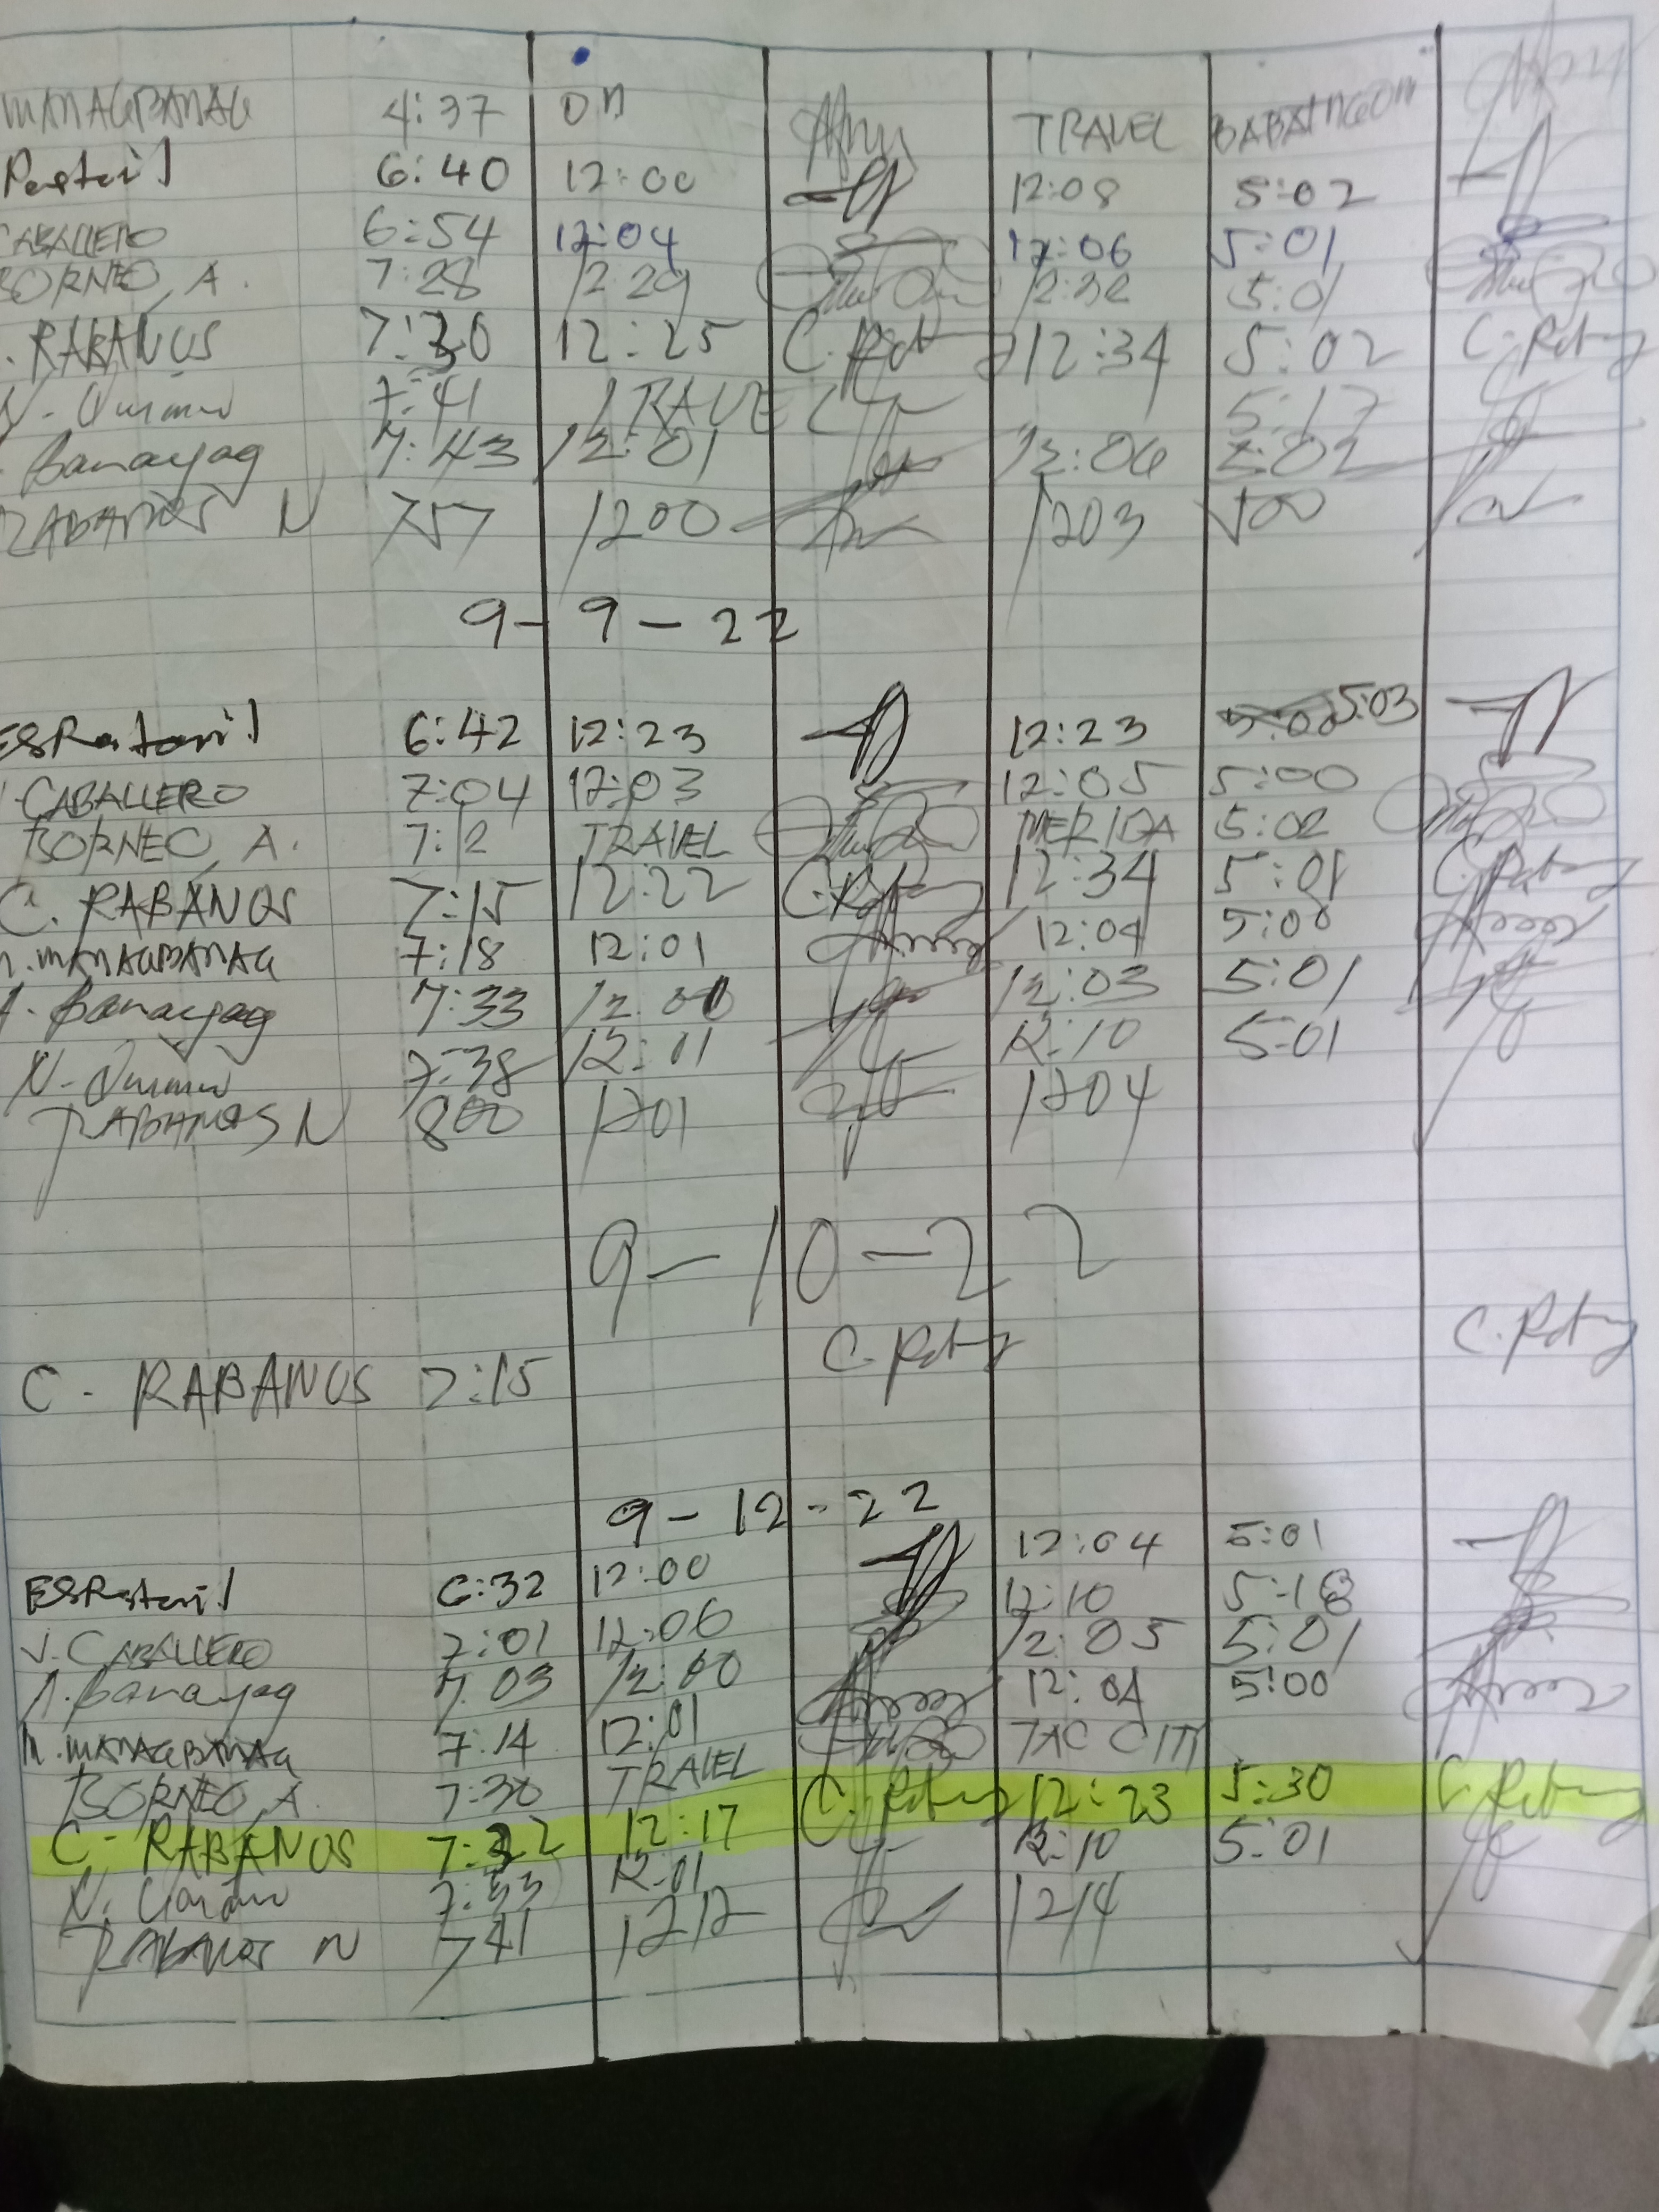 MANAGBANAG 4:37 ON TRAVEL BABATNGON
6:40 12:00 12:08 5:02
CABALLERO 6:54 12:04 12:06 5:01
BORNEO, A. 7:28 12:29 12:32 5:01
. RABANOS 7:30 12:25 C. 12:34 5:02 C.
N. 7:41 TRAVEL 5:17
Banayag 7:43 12:01 12:06 5:02
RABANOS N 757 1200 1203 500
9-9-22
ESPastoril 6:42 12:23 12:23 5:03
CABALLERO 7:04 12:03 12:05 5:00
BORNEO, A. 7:12 TRAVEL MERIDA 5:02
C. RABANOS 7:15 12:22 C. 12:34 5:01 C.
M. MANAGBANAG 7:18 12:01 12:04 5:00
A. Banayag 7:33 12:00 12:03 5:01
N. 7:38 12:01 12:10 5:01
RABANOS N 800 1201 1204
9-10-22
C - RABANOS 7:15 C. C.
9-12-22
ESPastoril 6:32 12:00 12:04 5:01
V. CABALLERO 7:01 12:06 12:10 5:18
A. Banayag 7:03 12:00 12:05 5:01
M. MANAGBANAG 7:14 12:01 12:04 5:00
BORNEO, A. 7:30 TRAVEL TAC CITY
C - RABANOS 7:32 12:17 C. 12:23 5:30 C.
N. 7:33 12:01 12:10 5:01
RABANOS N 741 1212 1214